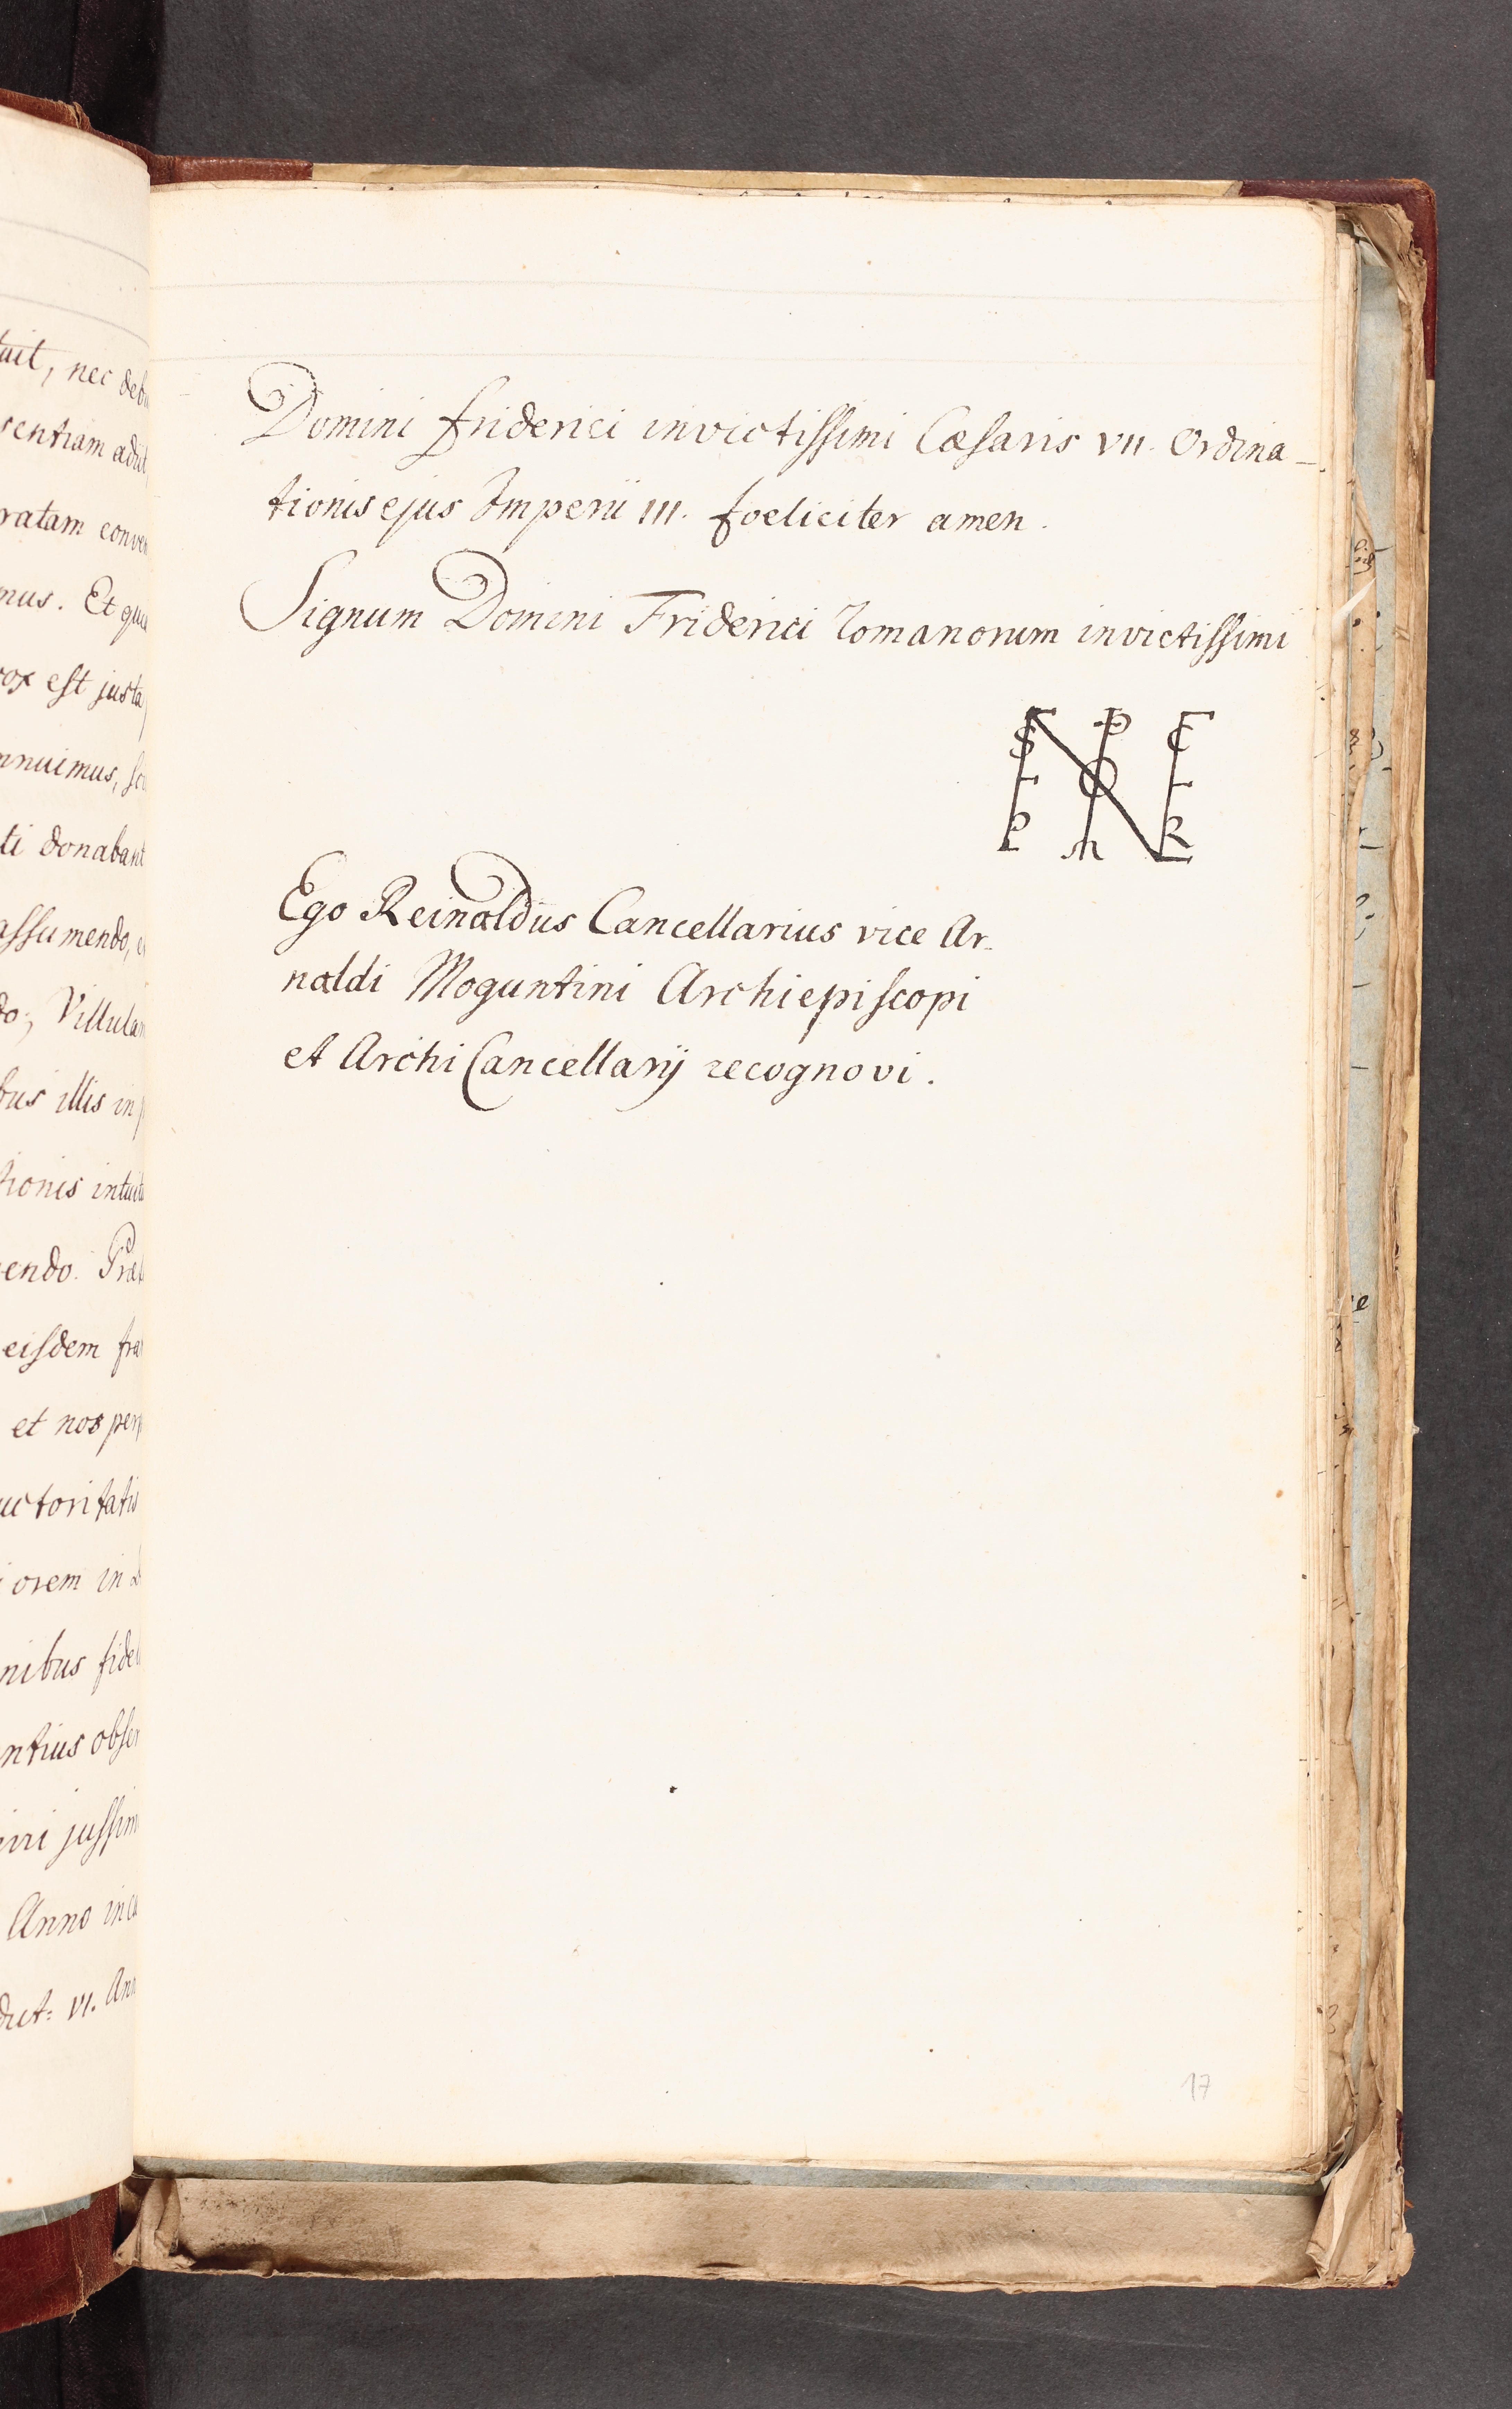 tuit, nec deb
sentiam adul
ratam conven
mus. Et qui
vox est justa
nnuimus,
ti donabant
assumendo,
do; Villulam
bus illis in
tionis intuitu
endo. Præ
eisdem fra
et nos perp
uctoritatis
iorem in
nibus fide
ntius obser
iri jussim
Anno inca
dict: VI. Ann
Domini Friderici invictissimi Cæsaris VII. Ordina-
tionis ejus Imperii III. foeliciter amen.
Signum Domini Friderici Romanorum invictissimi
Ego Reinaldus Cancellarius vice Ar-
naldi Moguntini Archiepiscopi
et Archi Cancellarij recognovi.
17